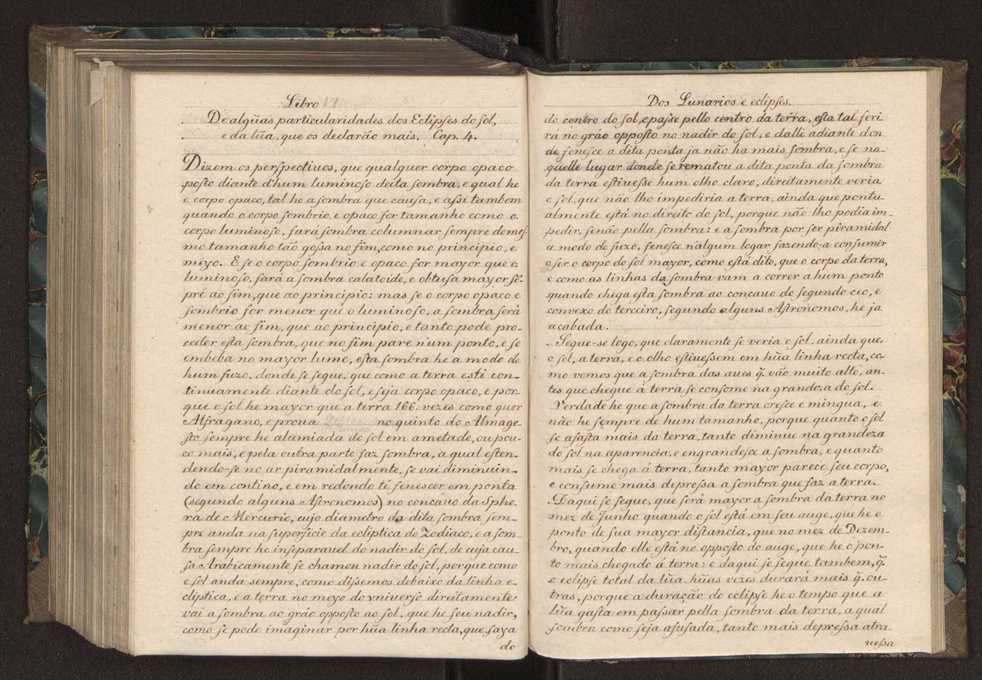 Libro VI
De algũas particularidades dos Eclipſes do ſol,
e da lũa, que os declarão mais. Cap. 4.
Dizem os perſpectiuos, que qualquer corpo opaco
poſto diante d'hum luminoſo deita ſombra, e qual he
e corpo opaco, tal he a ſombra que cauſa, e aſſi tambem
quando o corpo ſombrio, e opaco for tamanho como o
corpo luminoſo, fará ſombra columnar ſempre de meſ
mo tamanho tão goſſa no fim, como no principio, e
meyo. E ſe o corpo ſombrio e opaco for mayor que o
luminoſo, fará a ſombra calatoide, e obtuſa mayor ſẽ-
pre ao fim, que ao principio: mas ſe o corpo opaco e
ſombrio for menor que o luminoſo, a ſombra ſerá
menor ao fim, que ao principio, e tanto pode pro-
ceder eſta ſombra, que no fim pare n'um ponto, e ſe
embeba no mayor lume, eſta ſombra he a modo de
hum fuzo, donde ſe ſegue, que como a terra está con-
tinuamente diante do ſol, e ſeja corpo opaco, e por
que o ſol he mayor que a terra 166. vezes como quer
Alfragano, e proua no quinto do Almage
ſto ſempre he alumiada do ſol em ametade, ou pou-
co mais, e pela outra parte faz ſombra, a qual eſten-
dendo-ſe no ar piramidalmente, ſe vai diminuin-
do em contino, e em redondo té fenescer em ponta
(segundo alguns Aſtronomos) no concauo da Sphe-
ra de Mercurio, cujo diametro da dita ſombra ſem-
pre anda na ſuperficie da ecliptica do Zodiaco, e a ſom-
bra ſempre he inſeparauel do nadir do ſol, de cuja cau-
ſa Arabicamente ſe chamou nadir do ſol, porque como
o ſol anda sempre, como diſsemos debaixo da linha e-
cliptica, e a terra no meyo do vniuerſo direitamente
vai a ſombra ao gráo oppoſto ao ſol, que he ſeu nadir,
como ſe pode imaginar por hũa linha recta, que ſaya
do
Dos Lunarios e eclipſes.
do centro do ſol, e paſse pello centro da terra, eſta tal feri
rá no gráo oppoſto no nadir do ſol, e dalle adiante don
de feneſce a dita ponta ja não ha mais ſombra, e ſe na-
quelle lugar donde ſe rematou a dita ponta da ſombra
da terra eſtiueſse hum olho claro, direitamente veria
o ſol, que não lho impediria a terra, ainda que pontu-
almente eſtá no direito do ſol, porque não lho podia im-
pedir, ſenão pella ſombra: e a ſombra por ſer piramidal
a modo de fuzo, feneſce n'algum logar fazendo-a conſumir
o ſer o corpo do ſol mayor, como eſtá dito, que o corpo da terra,
e como as linhas da ſombra vam a correr a hum ponto
quando chega eſta ſombra ao concauo do ſegundo ceo, e
convexo do terceiro, ſegundo alguns Aſtronomos, he ja
acabada.
Segue-se logo, que claramente ſe veria o ſol, ainda que
o ſol, a terra, e o olho eſtiueſsem em hũa linha recta, co-
mo vemos que a ſombra das aues q̃ vão muito alto, an-
tes que chegue á terra ſe conſome na grandeza do ſol.
Verdade he que a ſombra da terra creſce e mingua, e
não he ſempre de hum tamanho, porque quanto o ſol
ſe afaſta mais da terra, tanto diminue na grandeza
do ſol na aparencia, e engrandeſce a ſombra, e quanto
mais ſe chega á terra, tanto mayor parece ſeu corpo,
e conſume mais depreſsa a ſombra que faz a terra.
Daqui ſe ſegue, que ſerá mayor a ſombra da terra no
mez de Junho quando o ſol eſtá em ſeu auge, que he o
ponto de ſua mayor diſtancia, que no mez de Dezem-
bro, quando elle eſtá no oppoſto do auge, que he o pon-
to mais chegado á terra: e daqui ſe ſegue tambem, q̃
o eclipſe total da lũa hũas vezes durará mais q̃ ou-
tras, porque a duração do eclipſe he o tempo que a
lũa gaſta em paſsar pella ſombra da terra, a qual
ſombra como ſeja afuſada, tanto mais depreſsa atra
ueſsa